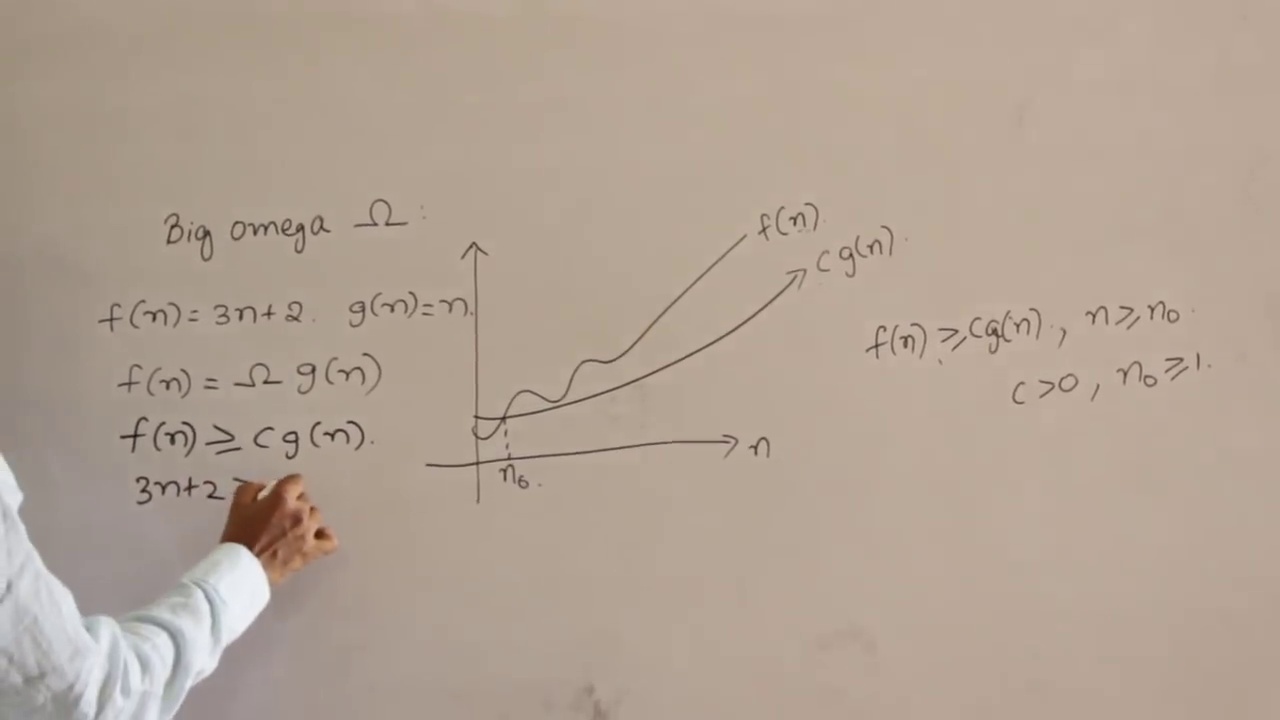 Big omega Ω:
f(n) = 3n+2. g(n)=n.
f(n) = Ω g(n)
f(n) ≥ c g(n).
3n+2 ≥
f(n).
c g(n).
n
n₀.
f(n) ≥ cg(n), n ≥ n₀.
c > 0, n₀ ≥ 1.